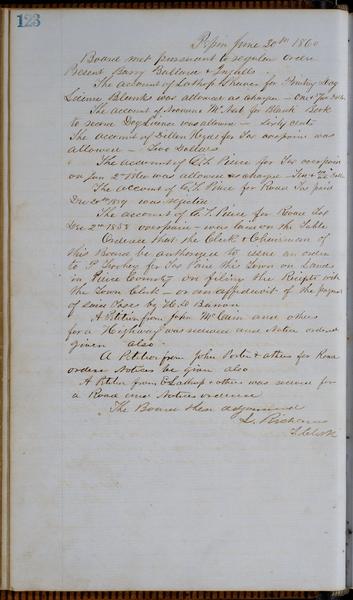 123
Pepin June 20th 1860
Board met pursuant to regular order
Present Barry Ballard &
The account of Lathrop for Printing Dog
License Blanks was allowed as charged — One & Two
The account of Newcomb & for Blank Book
to record Dog License was allowed — Sixty cents
The account of Dillen for Tax overpaid was
allowed — Two Dollars
The account of C. T. Pierce for Tax overpaid
on Jan 2nd 1860 was allowed as charged — Ten &
The account of C. T. Pierce for Road Tax paid
Dec 20th 1859 was rejected
The account of C. T. Pierce for Road Tax
Dec 2nd 1858 overpaid — was laid on the Table
Ordered that the Clerk & Chairman of
this Board be authorized to issue an order
to P. for Tax Paid this Town on Lands
in Pierce County on filing the Receipt with
the Town Clerk — or an affidavit of the payment
of said Taxes by H. D. Barron
A Petition from John McCain and others
for a Highway was received and Notice ordered
given also
A Petition from John Porter & others for Road
orders Notices be given also
A Petition from E Lathrop & others was received for
a Road and Notices ordered
The Board then adjourned
L. Richards
T Clerk